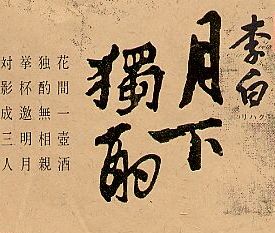 李白
月下
獨酌
花間一壺酒
独酌無相親
挙杯邀明月
対影成三人